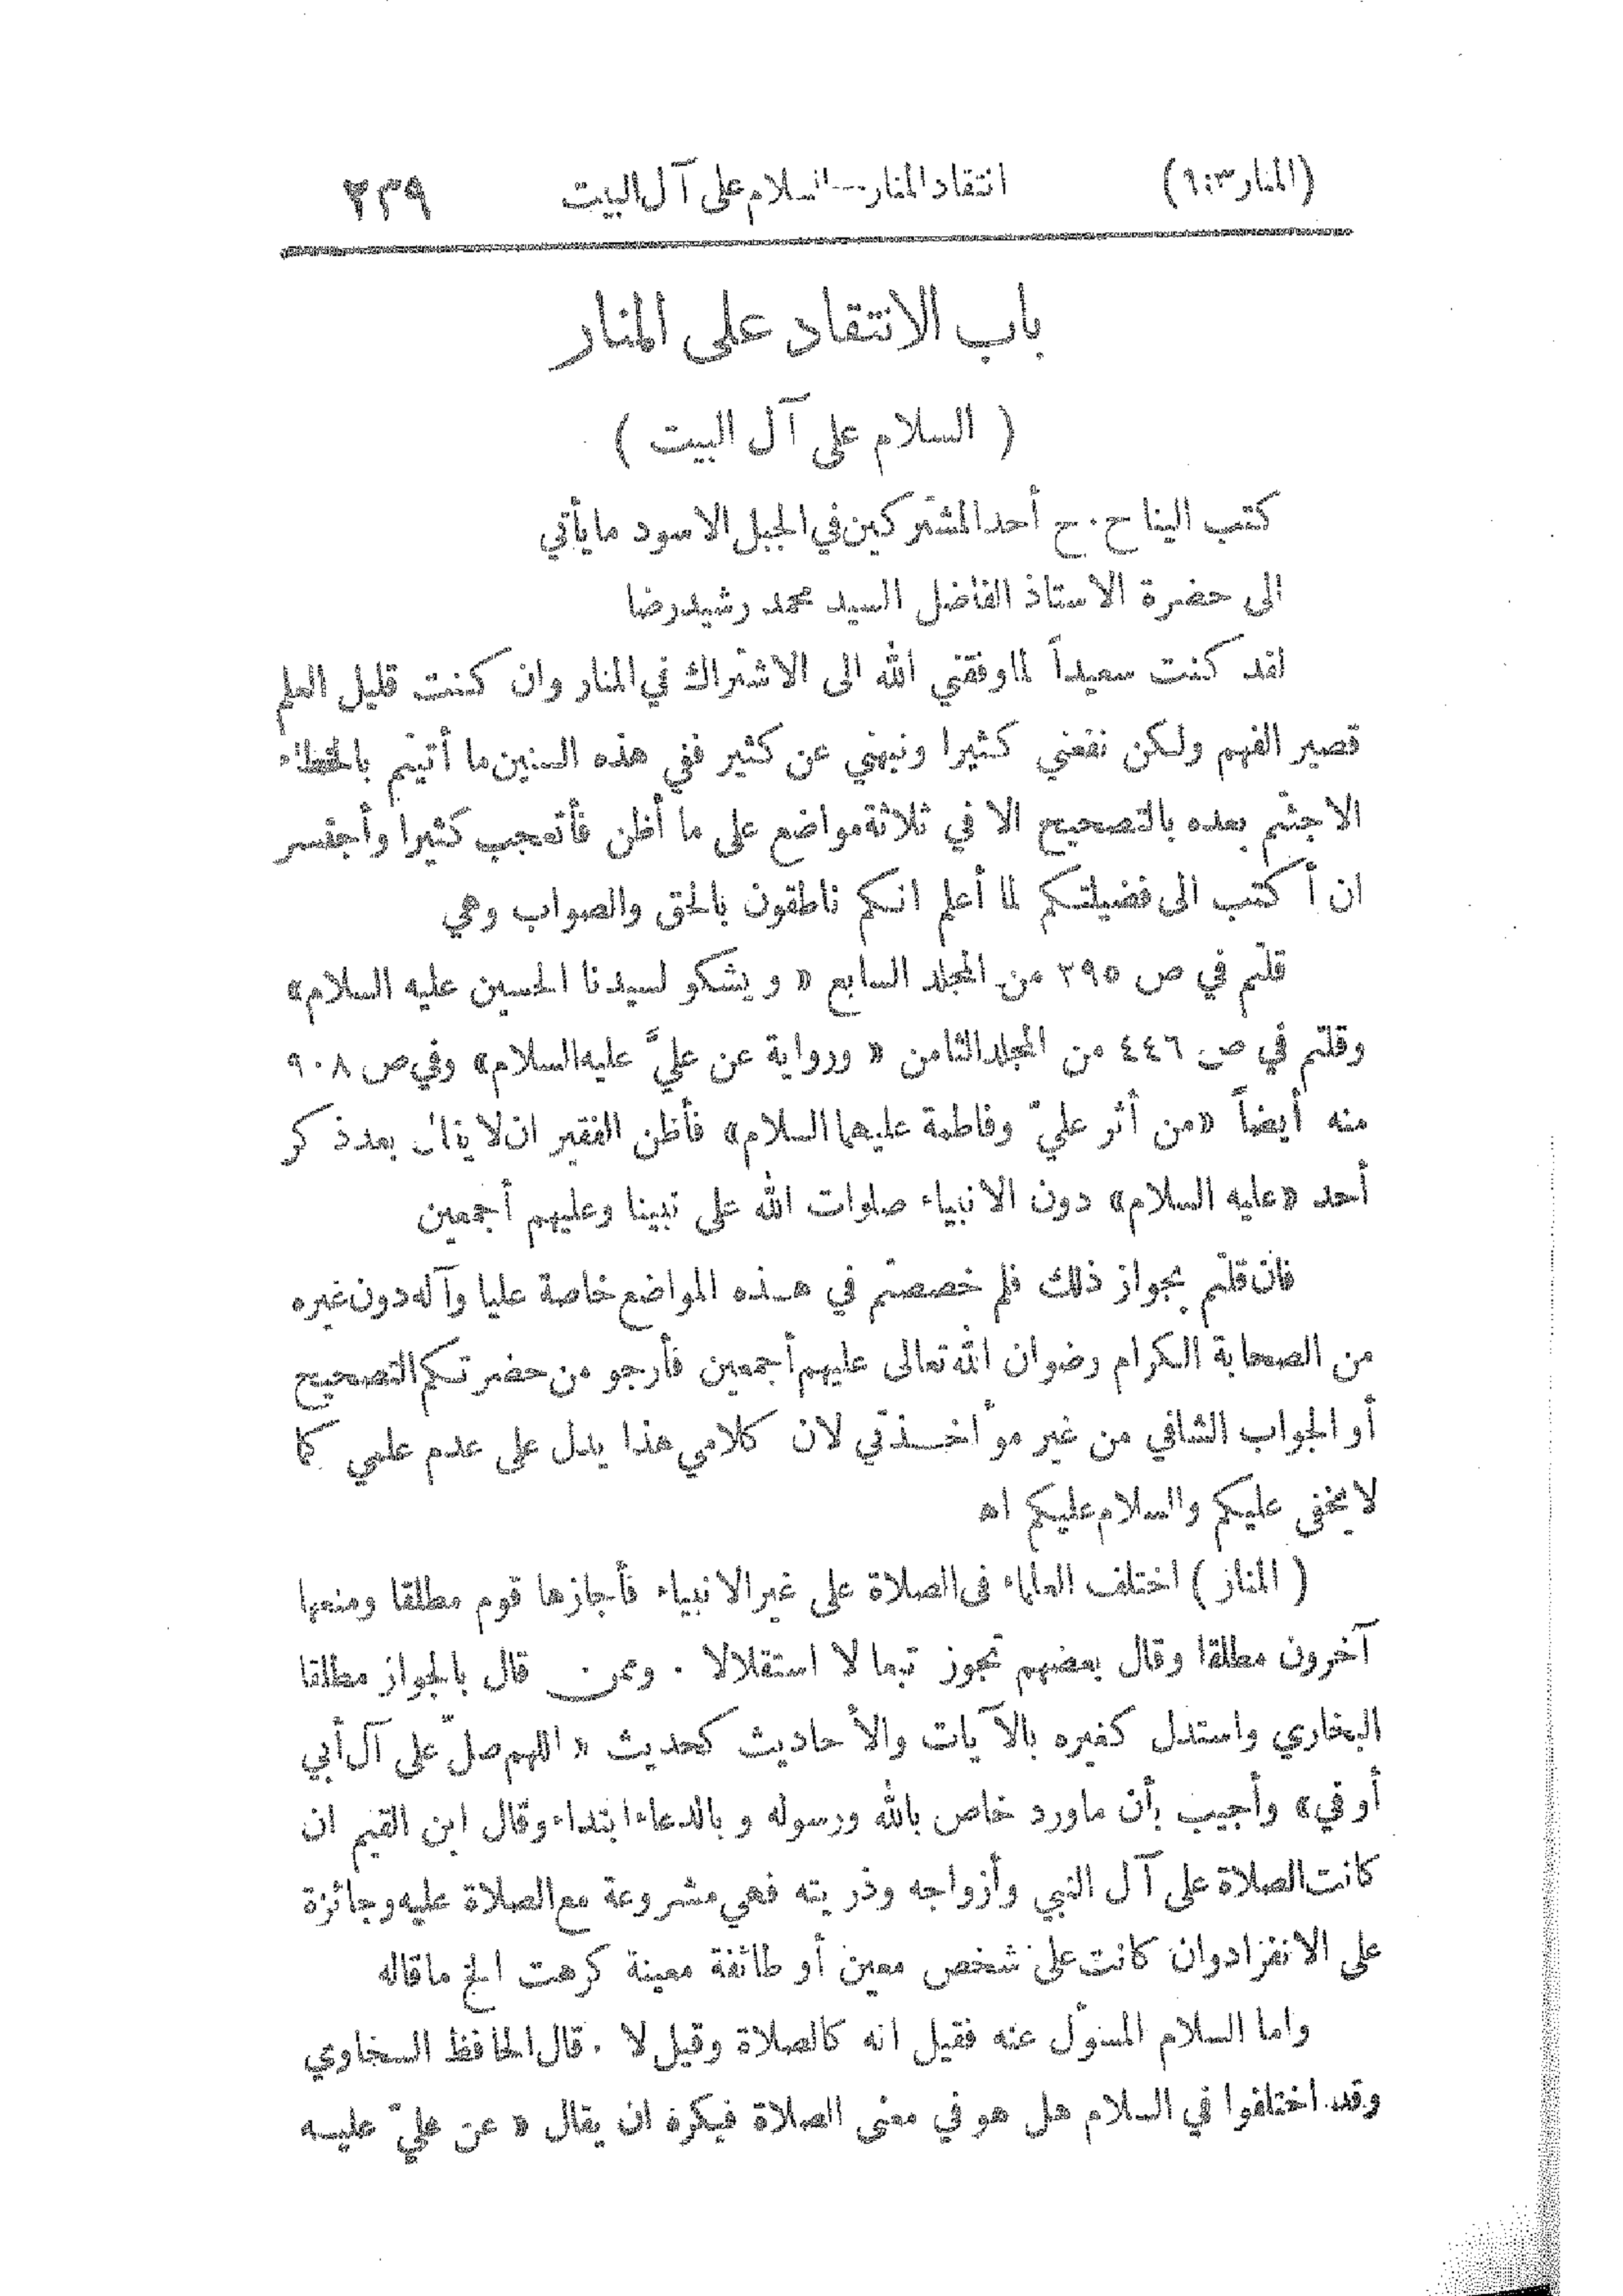 (المنار ٣:٩) انتقاد المنار--السلام على آل البيت ٢٣٩
باب الانتقاد على المنار
( السلام على آل البيت )
كتب الينا ح . ح أحد المشتركين في الجبل الاسود ما يأتي
الى حضرة الاستاذ الفاضل السيد محمد رشيد رضا
لقد كنت سعيداً لما وفقني الله الى الاشتراك في المنار وان كنت قليل العلم
قصير الفهم ولكن نفعني كثيرا ونبهني عن كثير ففي هذه السنين ما أتيتم بالخطاء
الا جئتم بعده بالتصحيح الا في ثلاثة مواضع على ما أظن فأتعجب كثيرا وأجتسر
ان أكتب الى فضيلتكم لما أعلم انكم ناطقون بالحق والصواب وهي
قلتم في ص ٢٩٥ من المجلد السابع « ويشكو لسيدنا الحسين عليه السلام»
وقلتم في ص ٤٤٦ من المجلد الثامن « ورواية عن عليّ عليه السلام» وفي ص ٩٠٨
منه أيضاً «من أثر عليّ وفاطمة عليهما السلام» فأظن الفقير ان لا يقال بعد ذكر
أحد «عليه السلام» دون الانبياء صلوات الله على نبينا وعليهم أجمعين
فان قلتم بجواز ذلك فلم خصصتم في هذه المواضع خاصة عليا وآله دون غيره
من الصحابة الكرام رضوان الله تعالى عليهم أجمعين فأرجو من حضرتكم التصحيح
أو الجواب الشافي من غير مؤاخذتي لان كلامي هذا يدل على عدم علمي كما
لا يخفى عليكم والسلام عليكم اه
( المنار ) اختلف العلماء في الصلاة على غير الانبياء فأجازها قوم مطلقا ومنعها
آخرون مطلقا وقال بعضهم تجوز تبعا لا استقلالا . وممن قال بالجواز مطلقا
البخاري واستدل كغيره بالآيات والأحاديث كحديث « اللهم صلّ على آل أبي
أوفى» وأجيب بأن ماورد خاص بالله ورسوله وبالدعاء ابتداء وقال ابن القيم ان
كانت الصلاة على آل النبي وأزواجه وذريته فهي مشروعة مع الصلاة عليه وجائزة
على الانفراد وان كانت على شخص معين أو طائفة معينة كرهت الخ ماقاله
واما السلام المسؤل عنه فقيل انه كالصلاة وقيل لا . قال الحافظ السخاوي
وقد اختلفوا في السلام هل هو في معنى الصلاة فيكره ان يقال « عن عليّ عليه